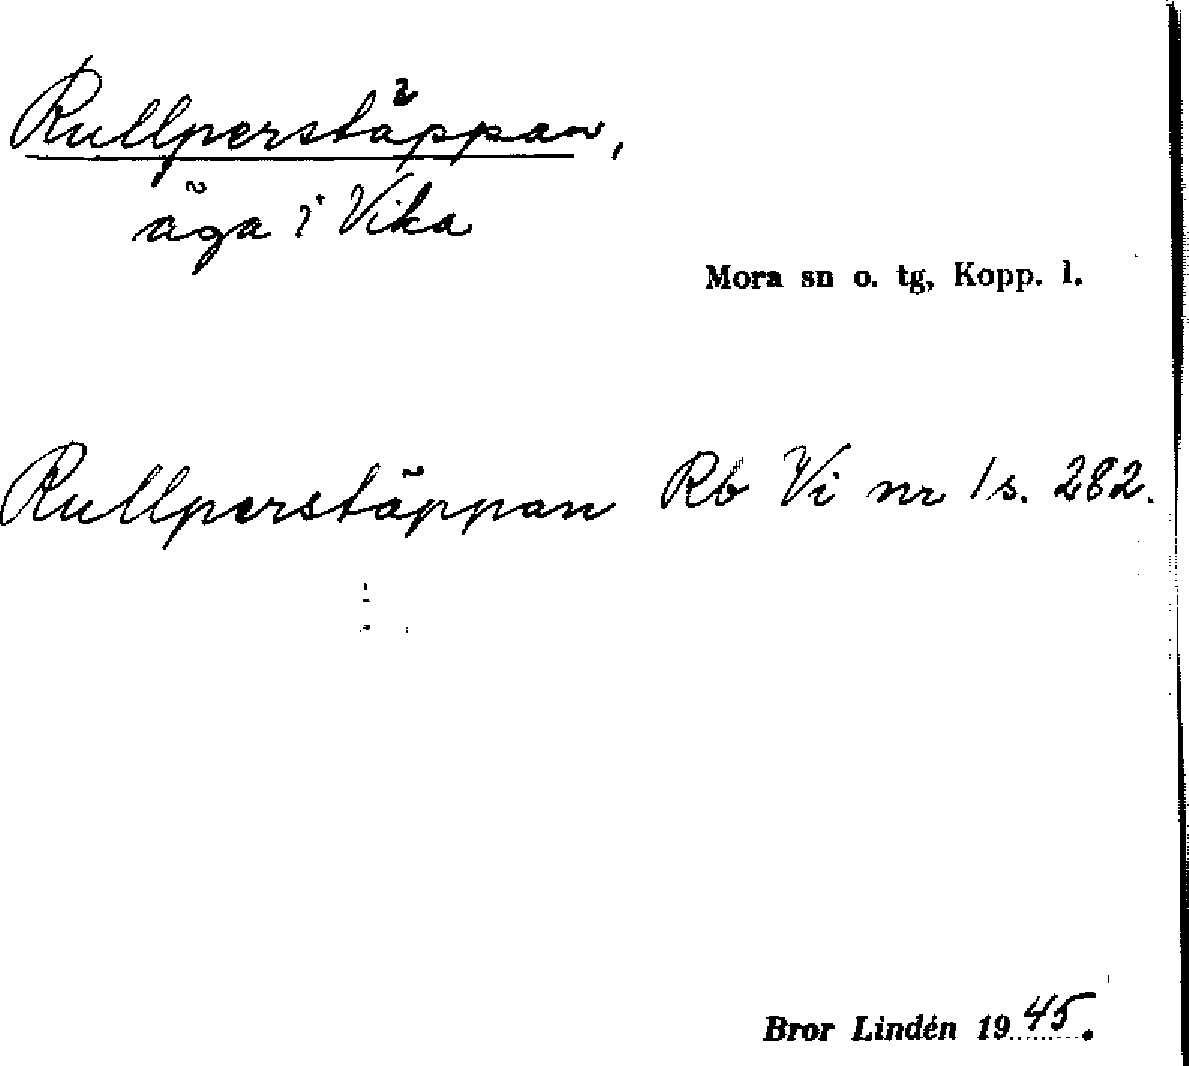 Rullperstäppan,
äga i Vika
Mora sn o. tg, Kopp. l.
Rullperstäppan Rb Vi nr 1 s. 282.
Bror Lindén 1945.